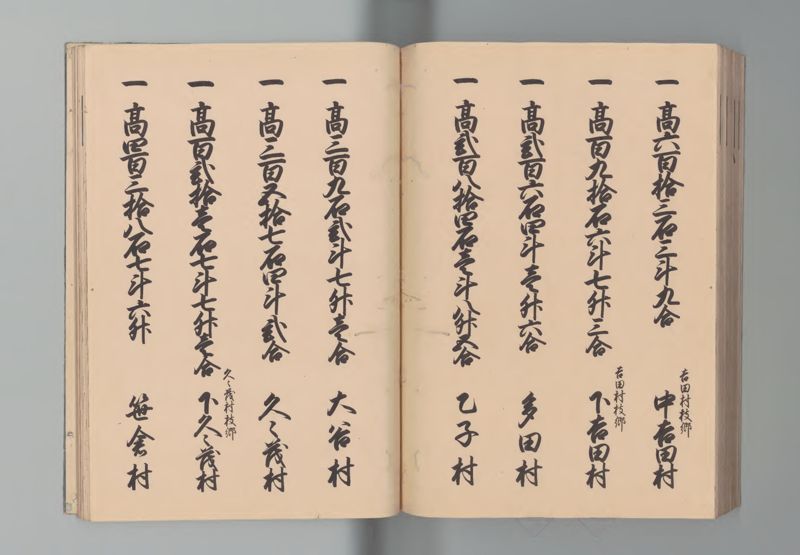 一 高六百拾三石三斗九合
吉田村枝郷
中吉田村
一 高百九拾石六斗七升三合
吉田村枝郷
下吉田村
一 高弐百六石四斗壱升六合
多田村
一 高弐百八拾四石壱斗八升五合
乙子村
一 高三百九石弐斗七升壱合
大谷村
一 高三百五拾七石四斗弐合
久々茂村
一 高百弐拾壱石七斗七升壱合
久々茂村枝郷
下久々茂村
一 高四百三拾八石七斗六升
笹倉村